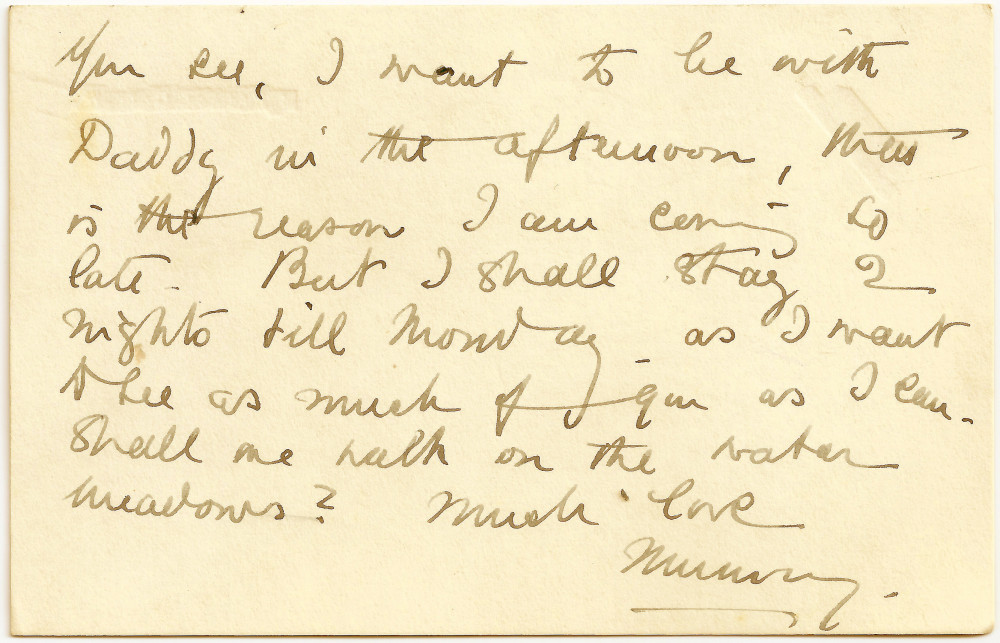 You see, I want to be with
Daddy in the afternoon, that
is the reason I am coming so
late - But I shall stay 2
nights till Monday - as I want
to see as much of you as I can -
Shall we walk on the water
meadows? Much love
Mummy.